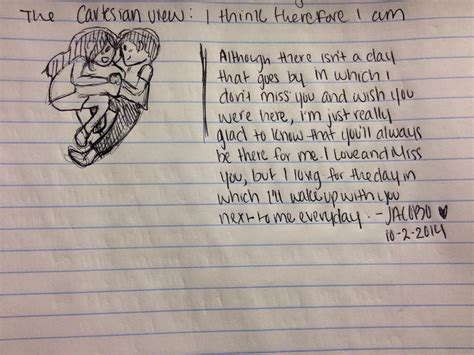 The Cartesian view: I think therefore I am
Although there isn't a day
that goes by in which I
don't miss you and wish you
were here, i'm just really
glad to know that you'll always
be there for me. I Love and Miss
you, but I long for the day in
which I'll wake up with you
next to me everyday. - JACOBO ♥
10-2-2014